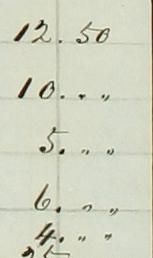 12. 50
10. „ „
5. „ „
6. „ „
4. „ „